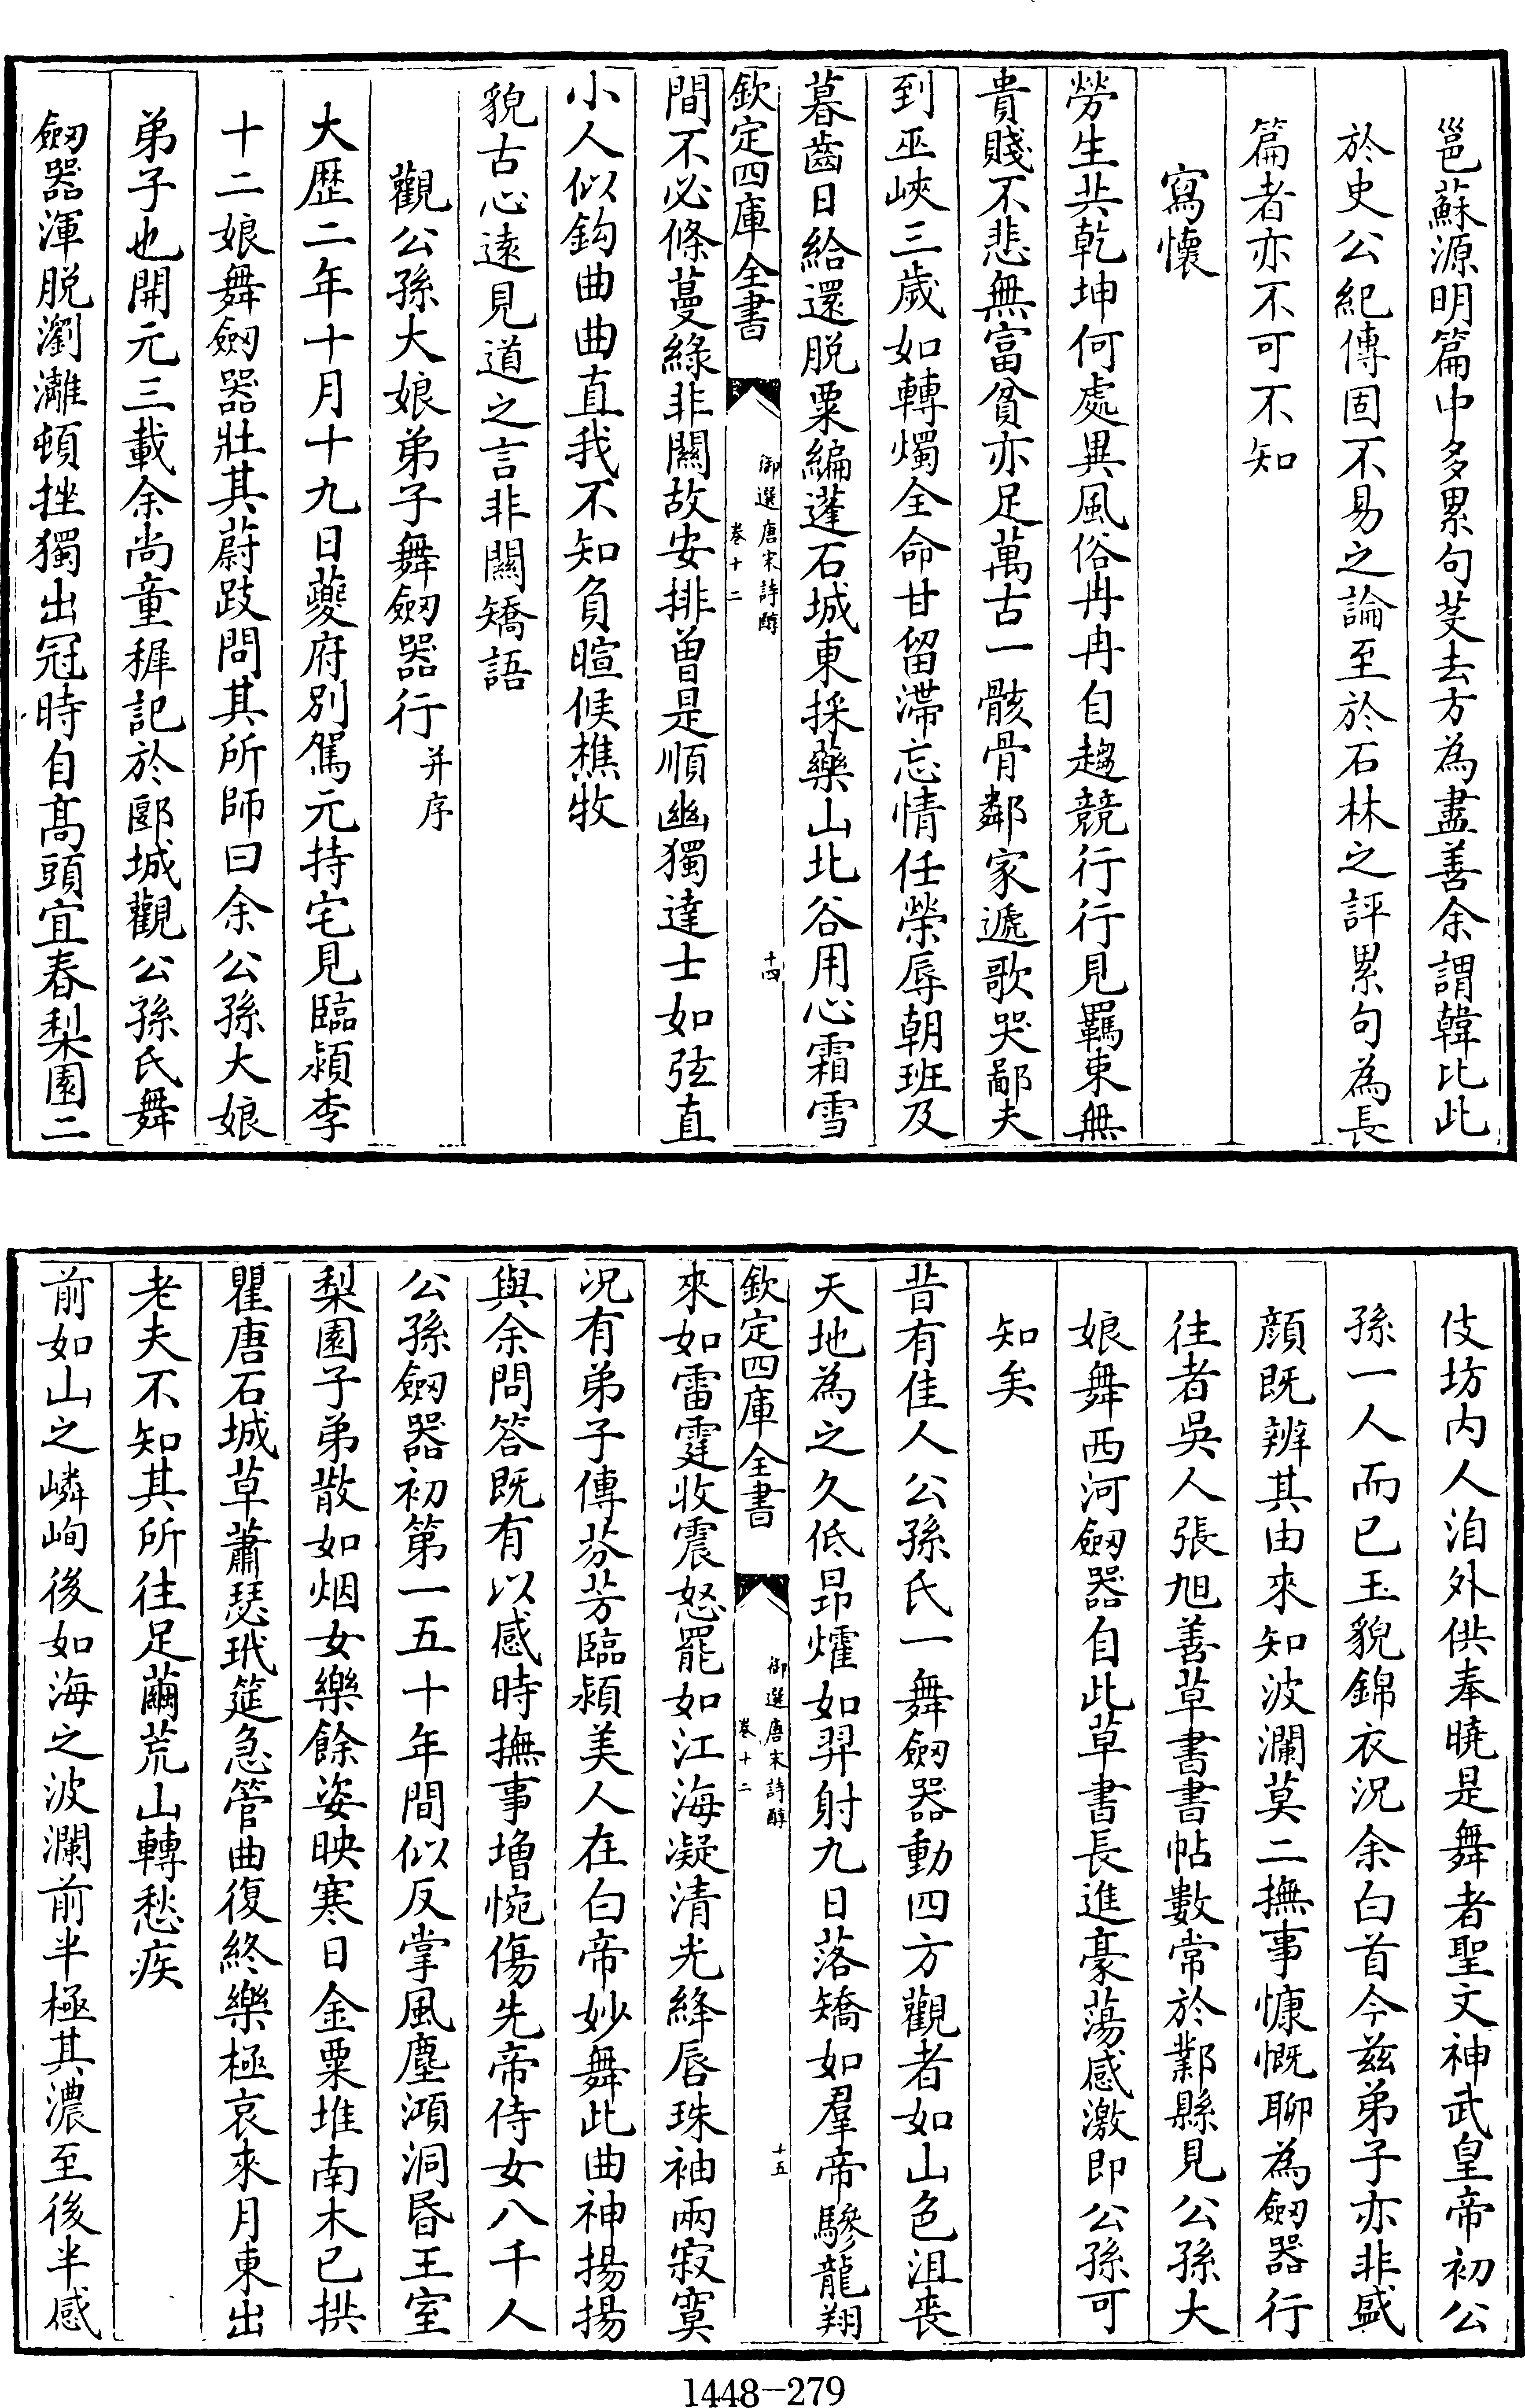 邕蘇源明篇中多累句芟去方為盡善余謂韓比此
於史公紀傳固不易之論至於石林之評累句為長
篇者亦不可不知
寫懷
勞生共乾坤何處異風俗冉冉自趨競行行見羈束無
貴賤不悲無富貧亦足萬古一骸骨鄰家遞歌哭鄙夫
到巫峽三歲如轉燭全命甘留滯忘情任榮辱朝班及
暮齒日給還脫粟編蓬石城東採藥山北谷用心霜雪
欽定四庫全書
御選唐宋詩醇
卷十二
十四
間不必條蔓緑非關故安排曽是順幽獨達士如弦直
小人似鈎曲曲直我不知負暄候樵牧
貌古心遠見道之言非關矯語
觀公孫大娘弟子舞劒器行并序
大歷二年十月十九日夔府別駕元持宅見臨潁李
十二娘舞劒器壯其蔚跂問其所師曰余公孫大娘
弟子也開元三載余尚童穉記於郾城觀公孫氏舞
劒器渾脫瀏灕頓挫獨出冠時自高頭宜春梨園二
伎坊内人洎外供奉曉是舞者聖文神武皇帝初公
孫一人而已玉貌錦衣況余白首今兹弟子亦非盛
顔既辨其由來知波瀾莫二撫事慷慨聊為劒器行
往者吳人張旭善草書書帖數常於鄴縣見公孫大
娘舞西河劒器自此草書長進豪蕩感激即公孫可
知矣
昔有佳人公孫氏一舞劒器動四方觀者如山色沮喪
天地為之久低昻㸌如羿射九日落矯如羣帝驂龍翔
欽定四庫全書
御選唐宋詩醇
卷十二
十五
來如雷霆收震怒罷如江海凝清光絳唇珠袖兩寂寞
況有弟子傳芬芳臨潁美人在白帝妙舞此曲神揚揚
與余問答既有以感時撫事增惋傷先帝侍女八千人
公孫劒器初第一五十年間似反掌風塵澒洞昏王室
梨園子弟散如烟女樂餘姿映寒日金粟堆南木已拱
瞿唐石城草蕭瑟玳筵急管曲復終樂極哀來月東出
老夫不知其所往足繭荒山轉愁疾
前如山之嶙峋後如海之波瀾前半極其濃至後半感
1448-279